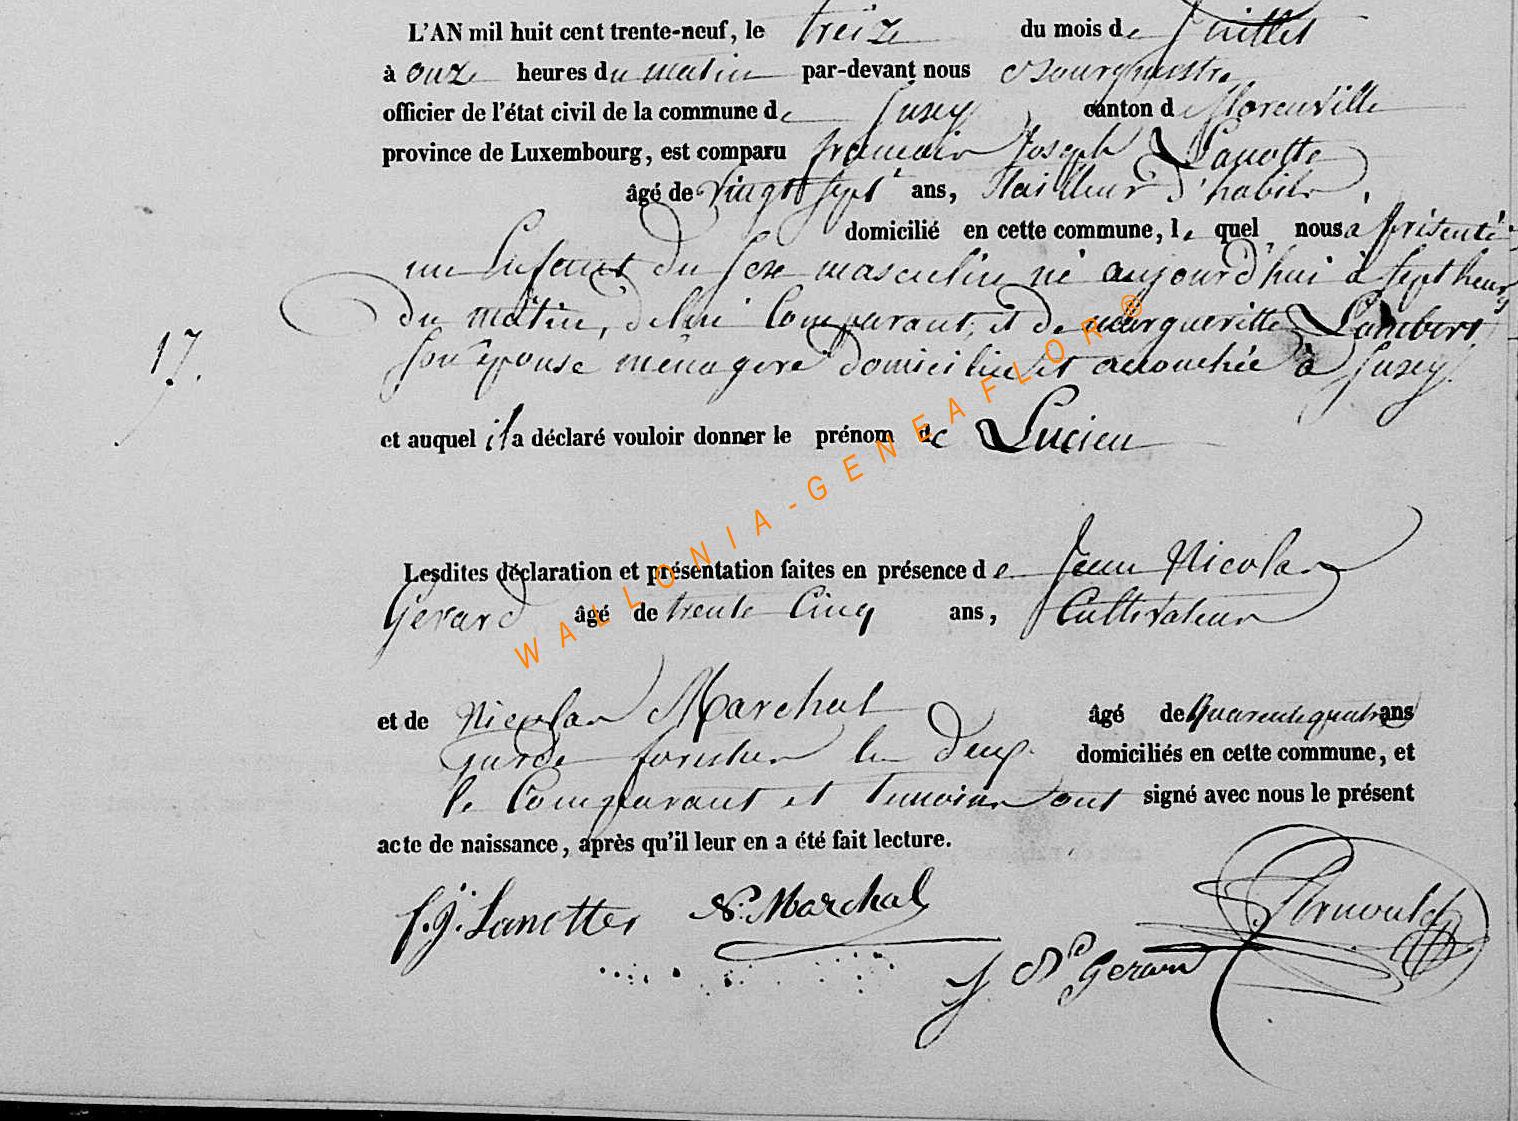 L'AN mil huit cent trente-neuf, le treize du mois de Juillet
à onze heures du matin par-devant nous Bourgmestre
officier de l'état civil de la commune de Suxy canton de florenville
province de Luxembourg, est comparu françois Joseph Lanotte
âgé de vingt sept ans, tailleur d'habits,
domicilié en cette commune, le quel nous a présenté
un Enfant du sexe masculin né aujourd'hui à sept heures
du matin, de lui Comparant, et de margueritte Lambert
son épouse ménagere domiciliée et accouchée à Suxy.
17.
et auquel il a déclaré vouloir donner le prénom de Lucien
Lesdites déclaration et présentation faites en présence de Jean Nicolas
Gerard âgé de trente Cinq ans, Cultivateur
et de Nicolas Marchal âgé de quarente quatre ans
garde forestier les deux domiciliés en cette commune, et
le Comparant et temoins ont signé avec nous le présent
acte de naissance, après qu'il leur en a été fait lecture.
f.j. Lanotte N. Marchal Arnould
J N Gerard
WALLONIA-GENEAFLOR®